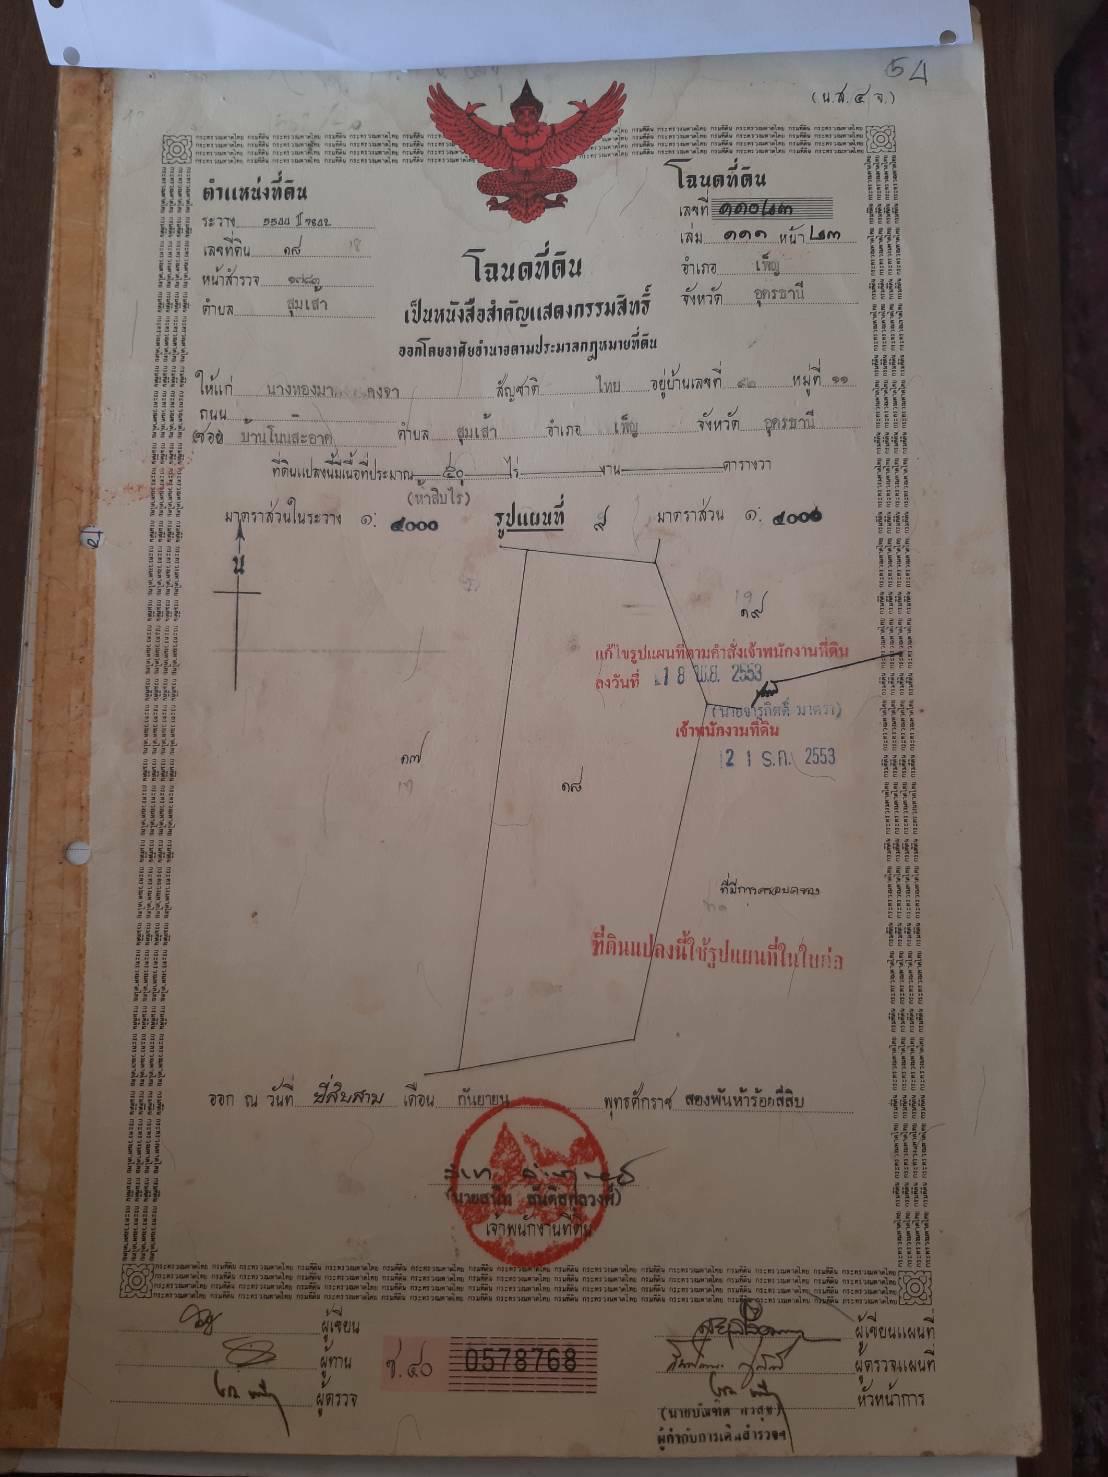 54
(น.ส.๔ จ.)
ตำแหน่งที่ดิน
ระวาง 5544 II 7842
เลขที่ดิน ๑๘ 18
หน้าสำรวจ ๑๗๘๓
ตำบล สุมเส้า
โฉนดที่ดิน
เลขที่ ๑๑๐๒๓
เล่ม ๑๑๑ หน้า ๒๓
อำเภอ เพ็ญ
จังหวัด อุดรธานี
โฉนดที่ดิน
เป็นหนังสือสำคัญแสดงกรรมสิทธิ์
ออกโดยอาศัยอำนาจตามประมวลกฎหมายที่ดิน
ให้แก่ นางทองมา คงจา สัญชาติ ไทย อยู่บ้านเลขที่ ๙๒ หมู่ที่ ๑๑
ถนน
(ซอย) บ้านโนนสะอาด ตำบล สุมเส้า อำเภอ เพ็ญ จังหวัด อุดรธานี
ที่ดินแปลงนี้มีเนื้อที่ประมาณ ๕๐ ไร่ งาน ตารางวา
(ห้าสิบไร่)
มาตราส่วนในระวาง ๑: ๔๐๐๐ รูปแผนที่ มาตราส่วน ๑: ๔๐๐๐
น
19
๑๙
แก้ไขรูปแผนที่ตามคำสั่งเจ้าพนักงานที่ดิน
ลงวันที่ 18 พ.ย. 2553
(นายจารุกิตติ์ มาตรา)
เจ้าพนักงานที่ดิน
21 ธ.ค. 2553
๑๗
๑๘
ที่มีการครอบครอง
ที่ดินแปลงนี้ใช้รูปแผนที่ในใบต่อ
ออก ณ วันที่ ยี่สิบสาม เดือน กันยายน พุทธศักราช สองพันห้าร้อยสี่สิบ
เจ้าพนักงานที่ดิน
ผู้เขียน
ผู้ทาน
ผู้ตรวจ
ช.๔๐ 0578768
ผู้เขียนแผนที่
ผู้ตรวจแผนที่
หัวหน้าการ
ผู้กำกับการเดินสำรวจฯ